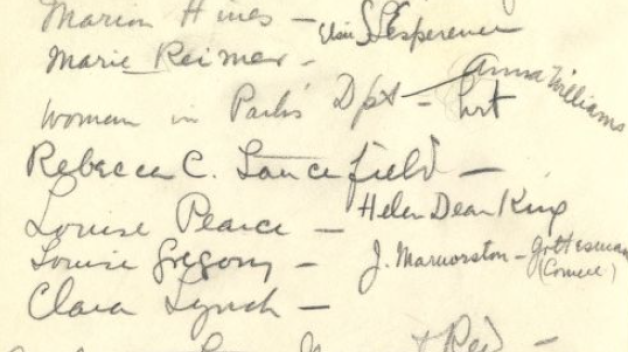 Marion Hines - Elsie L'Esperance
Marie Reimer -
Anna Williams
Woman in Park's Dpt -
Rebecca C. Lancefield -
Louise Pearce - Helen Dean King
Louise Gregory - J. Marmorston - Gottesman
(Cornell)
Clara Lynch -